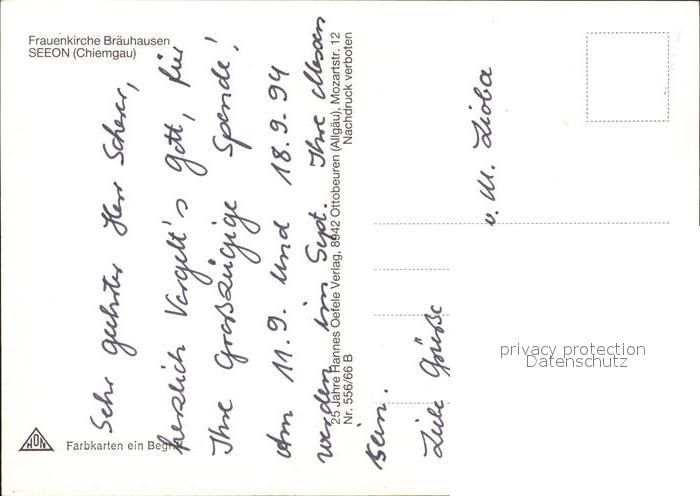 Frauenkirche Bräuhausen
SEEON (Chiemgau)
Sehr geehrter Herr Scherer,
herzlich Vergelt's Gott, für
Ihre Großzügige Spende!
Am 11.9. und 18.9.94
werden im Sept. Ihre Messen
sein.
Liebe Grüße
v. M. Lioba
25 Jahre Hannes Oefele Verlag, 8942 Ottobeuren (Allgäu), Mozartstr. 12
Nr. 556/66 B
Nachdruck verboten
HON
Farbkarten ein Begriff
privacy protection
Datenschutz